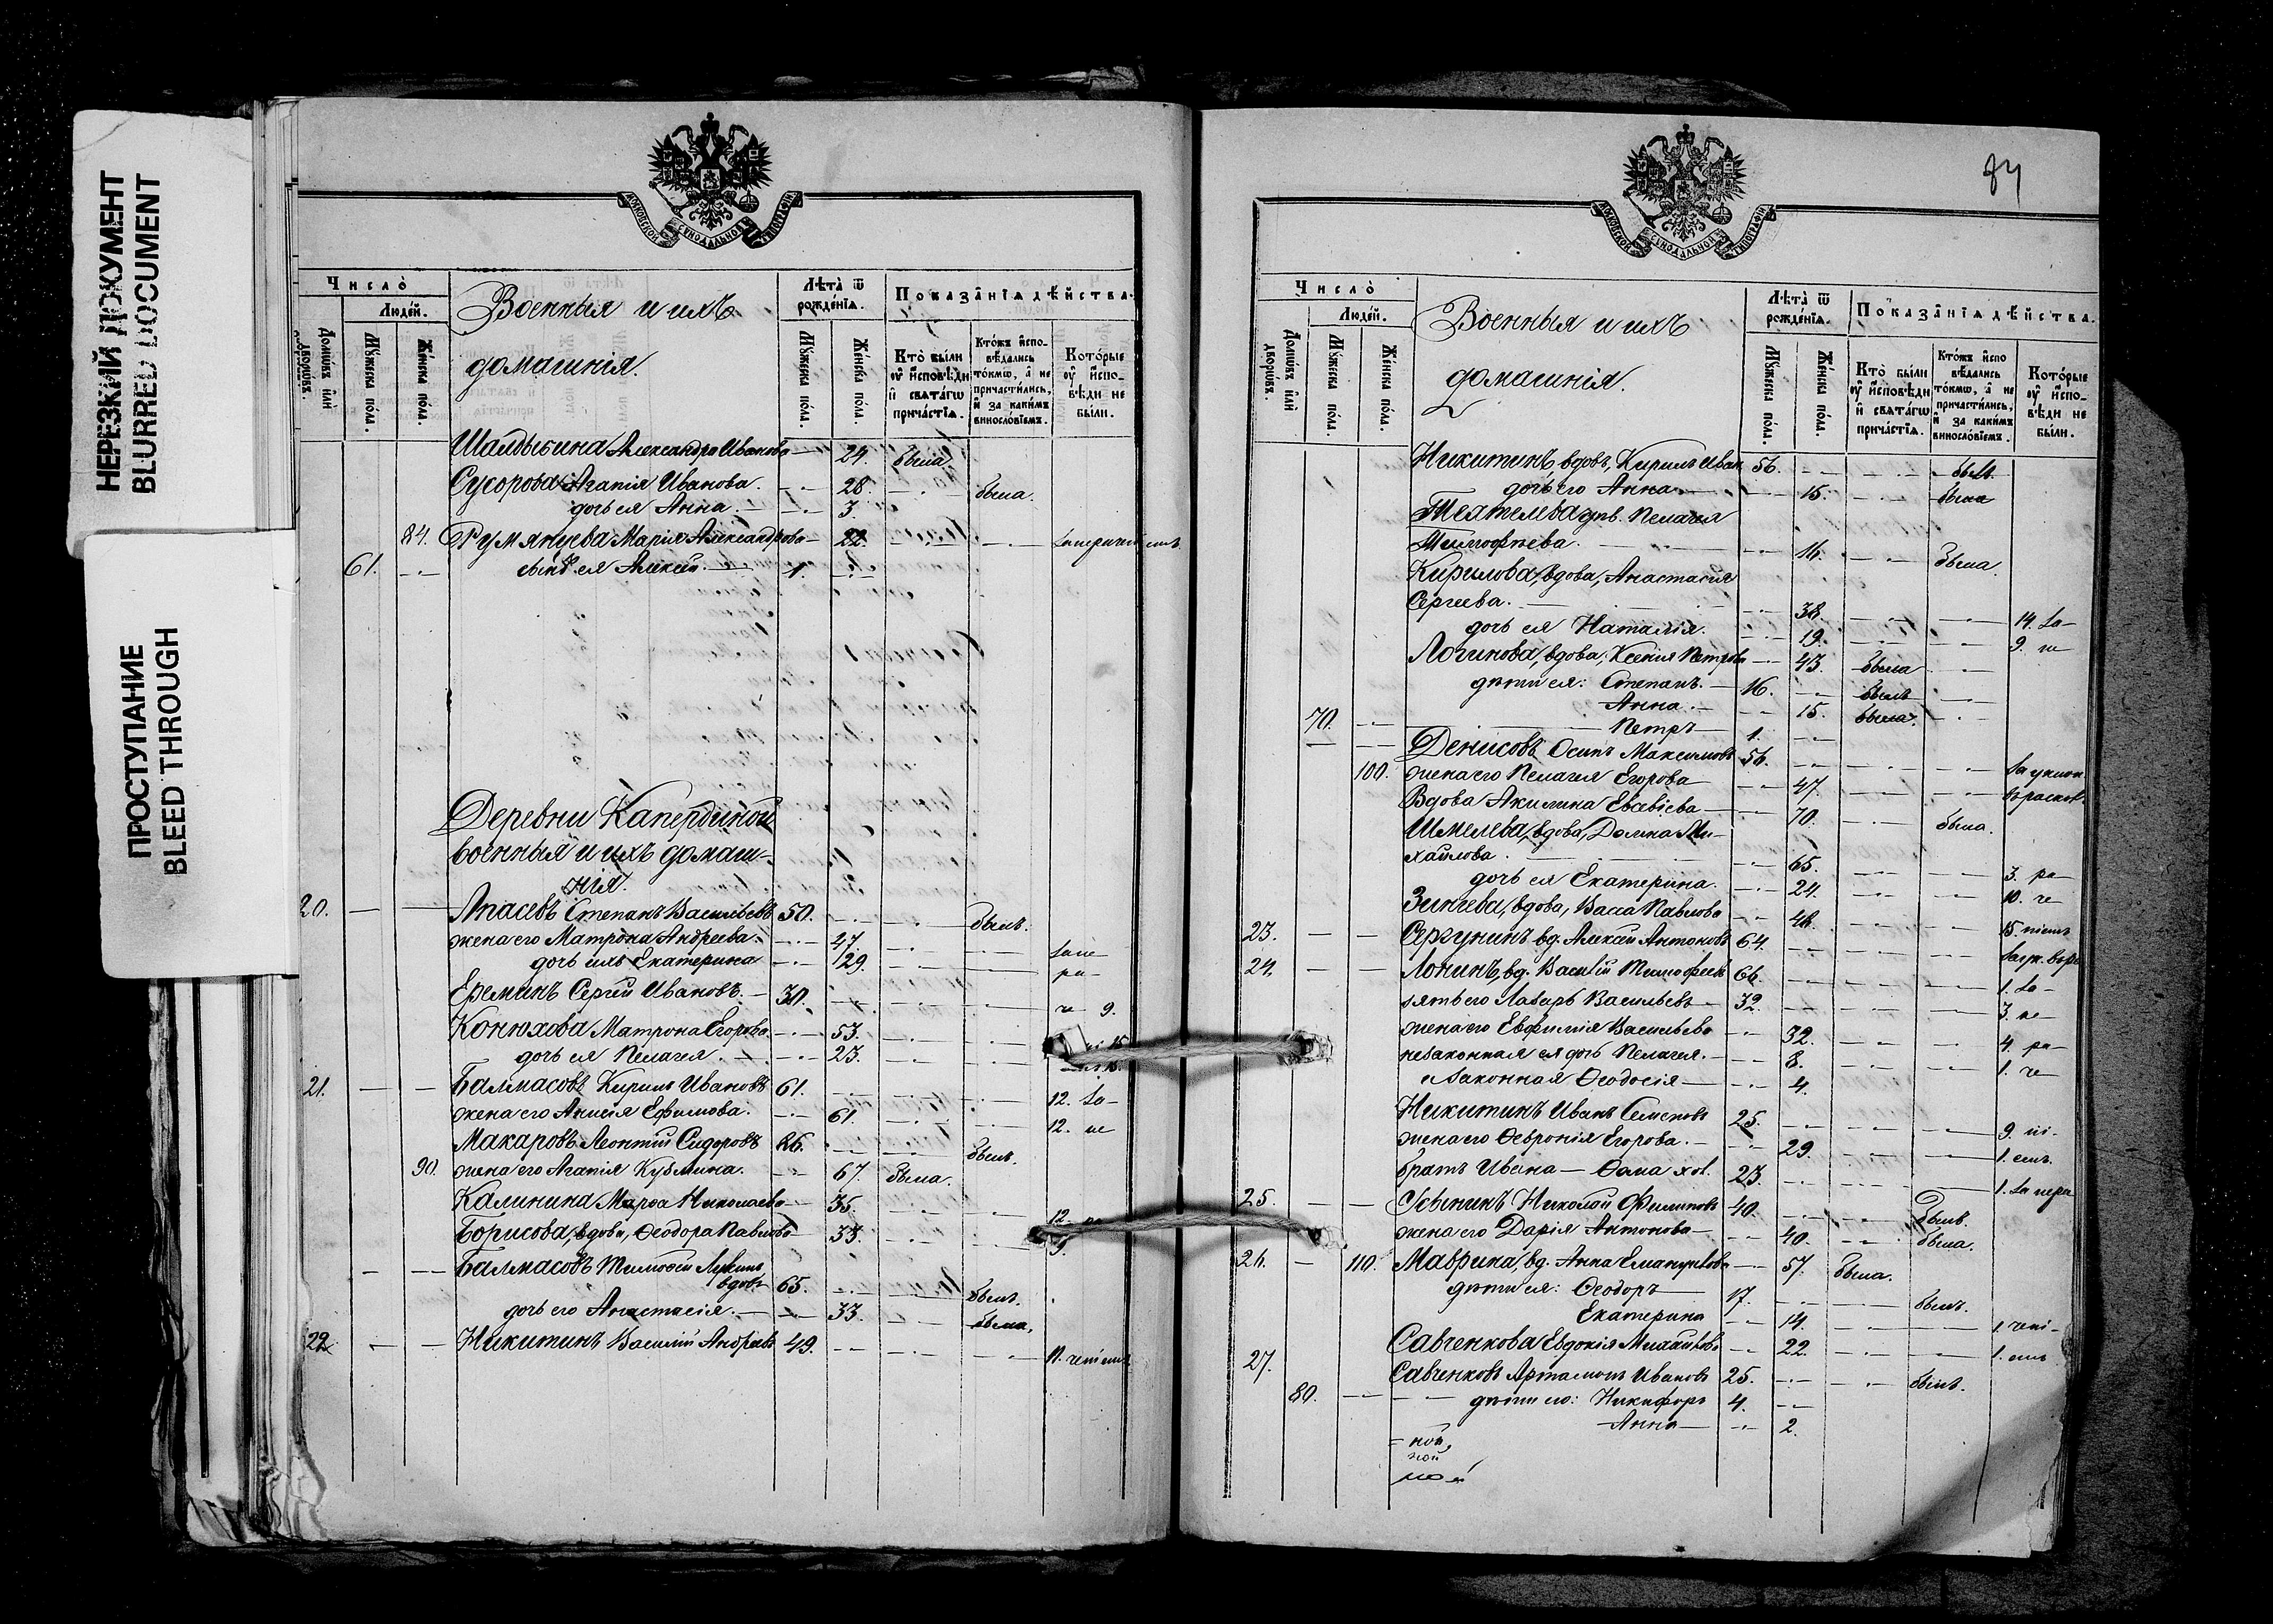 НЕРЕЗКИЙ ДОКУМЕНТ
BLURRED DOCUMENT
ПРОСТУПАНИЕ
BLEED THROUGH
МОСКОВСКОЙ СѴНОДАЛЬНОЙ ТИПОГРАФІИ
Число̀
Людей.
Домѡвъ и҆лѝ дворѡвъ.
Мꙋжеска пола.
Женска пола.
Военныя и ихъ
домашнія.
Лѣта̀ ѿ рождéнїѧ.
Мꙋжеска пола.
Женска пола.
Показáнїѧ дѣ́йства.
Кто̀ бы́ли оу҆ и҆сповѣди и҆ свѧтáгѡ причáстїѧ.
Кто́жъ и҆спо-вѣдались то́кмѡ, а҆ не причасти́лись, и҆ за каки́мъ винослóвїемъ.
Кото́рые оу҆ и҆спо-вѣди не бы́ли.
Шалдыкина Александра Иванова — 24. была.
Сухорова Агапія Иванова. 28. была.
дочь ея Анна. — 3
84. Румянцева Марія Александрова — 22.
61. сынъ ея Алексій. — 1.
Деревни Капердиной
военныя и ихъ домаш-
нія.
20. Апасевъ Степанъ Васильевъ 50. былъ.
жена его Матрона Андреева. 47.
дочь ихъ Екатерина 29.
Ереминъ Сергій Ивановъ. — 30. 9.
Конюхова Матрона Егорова. 53.
дочь ея Пелагея. 23.
21. Балмасовъ Кирилъ Ивановъ 61. 12. за-
жена его Анисія Ефимова. 61. 12. не
Макаровъ Леонтій Сидоровъ 86. былъ.
90. жена его Агапія Кузмина. 67. была.
Калинина Марѳа Николаева — 35. 12.
Борисова, вдова, Ѳеодора Павлова 33. 9.
Балмасовъ Тимоѳей Лукинъ
вдовъ 65. былъ.
дочь его Анастасія. — 33. была.
22. Никитинъ Василій Андреевъ 49.
84
МОСКОВСКОЙ СѴНОДАЛЬНОЙ ТИПОГРАФІИ
Число̀
Людей.
Домѡвъ и҆лѝ дворѡвъ.
Мꙋжеска пола.
Женска пола.
Военныя и ихъ
домашнія.
Лѣта̀ ѿ рождéнїѧ.
Мꙋжеска пола.
Женска пола.
Показáнїѧ дѣ́йства.
Кто̀ бы́ли оу҆ и҆сповѣди и҆ свѧтáгѡ причáстїѧ.
Кто́жъ и҆спо вѣдались то́кмѡ, а҆ не причасти́лись, и҆ за каки́мъ винослóвїемъ.
Кото́рые оу҆ и҆спо-вѣди не бы́ли.
Никитинъ, вдовъ, Кирилъ Иван. 56. былъ.
дочь его Анна. — 15. была
Пелагея
Тимоѳеева. 16. была.
Кирилова, вдова, Анастасія
Сергеева. 38. 14. за-
дочь ея Наталія. 19. 9.
Логинова, вдова, Ксенія Петрова — 43. была
дѣти ея: Степанъ. — 16. былъ
Анна. — 15. была.
70. Петръ — 1.
Денисовъ Осипъ Максимовъ 56.
100. жена его Пелагея Егорова 47.
Вдова Акилина Евсѣева 70. была.
Шмелева, вдова, Домна Ми-
хайлова. 65. 3. ра-
дочь ея Екатерина. 24. 10. че-
Зинчева, вдова, Васса Павлова 48. 15.
23. Сергунинъ вд. Алексій Антоновъ 64.
24. Лонинъ, вд. Василій Тимофеевъ 66. 1. за-
зять его Лазарь Васильевъ 32. 3. не-
жена его Евфимія Васильева 32. 4. ра-
незаконная ея дочь Пелагея. 8. 1. че
законная Ѳеодосія — 4.
Никитинъ Иванъ Семеновъ 25. 9.
жена его Ѳевронія Егорова. — 29. 1.
братъ Ивана — Ѳома хол. 23. 1.
25. Николай Филиповъ 40. былъ.
жена его Дарія Антонова — 40. была.
26. 110. Маврина, вд. Анна Емануилова 57. была.
дѣти ея: Ѳеодоръ 17. былъ.
Екатерина 14. 1.
Савченкова Евдокія Михайлова 22. 1.
27. Савченковъ Артамонъ Ивановъ 25. былъ.
80. дѣти его: Никифоръ 4.
Анна — 2.
ной
ной